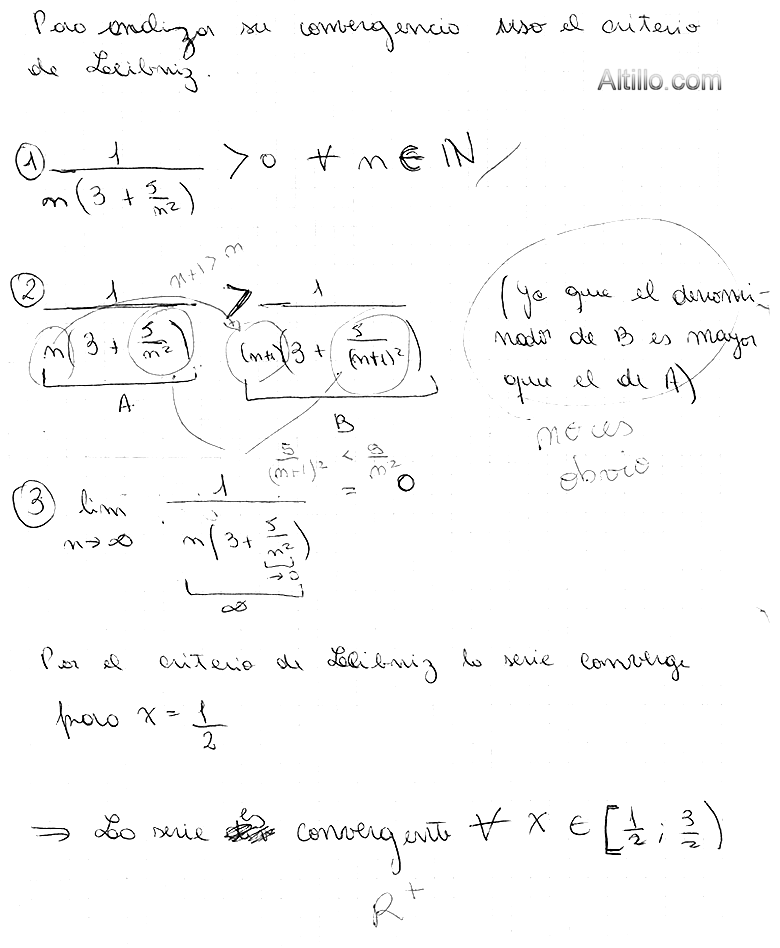 Para analizar su convergencia uso el criterio
de Leibniz.
Altillo.com
① 1 / n(3 + 5/n²) > 0 ∀ n ∈ ℕ
n+1 > n
② 1 / n(3 + 5/n²) > 1 / (n+1)(3 + 5/(n+1)²)
A B
(Ya que el denomi-
nador de B es mayor
que el de A)
no es
obvio
5/(n+1)² < 5/n²
③ lim n→∞ 1 / n(3 + 5/n²) = 0
→ 0
∞
Por el criterio de Leibniz la serie converge
para x = 1/2
⇒ La serie es convergente ∀ x ∈ [1/2 ; 3/2)
R⁺